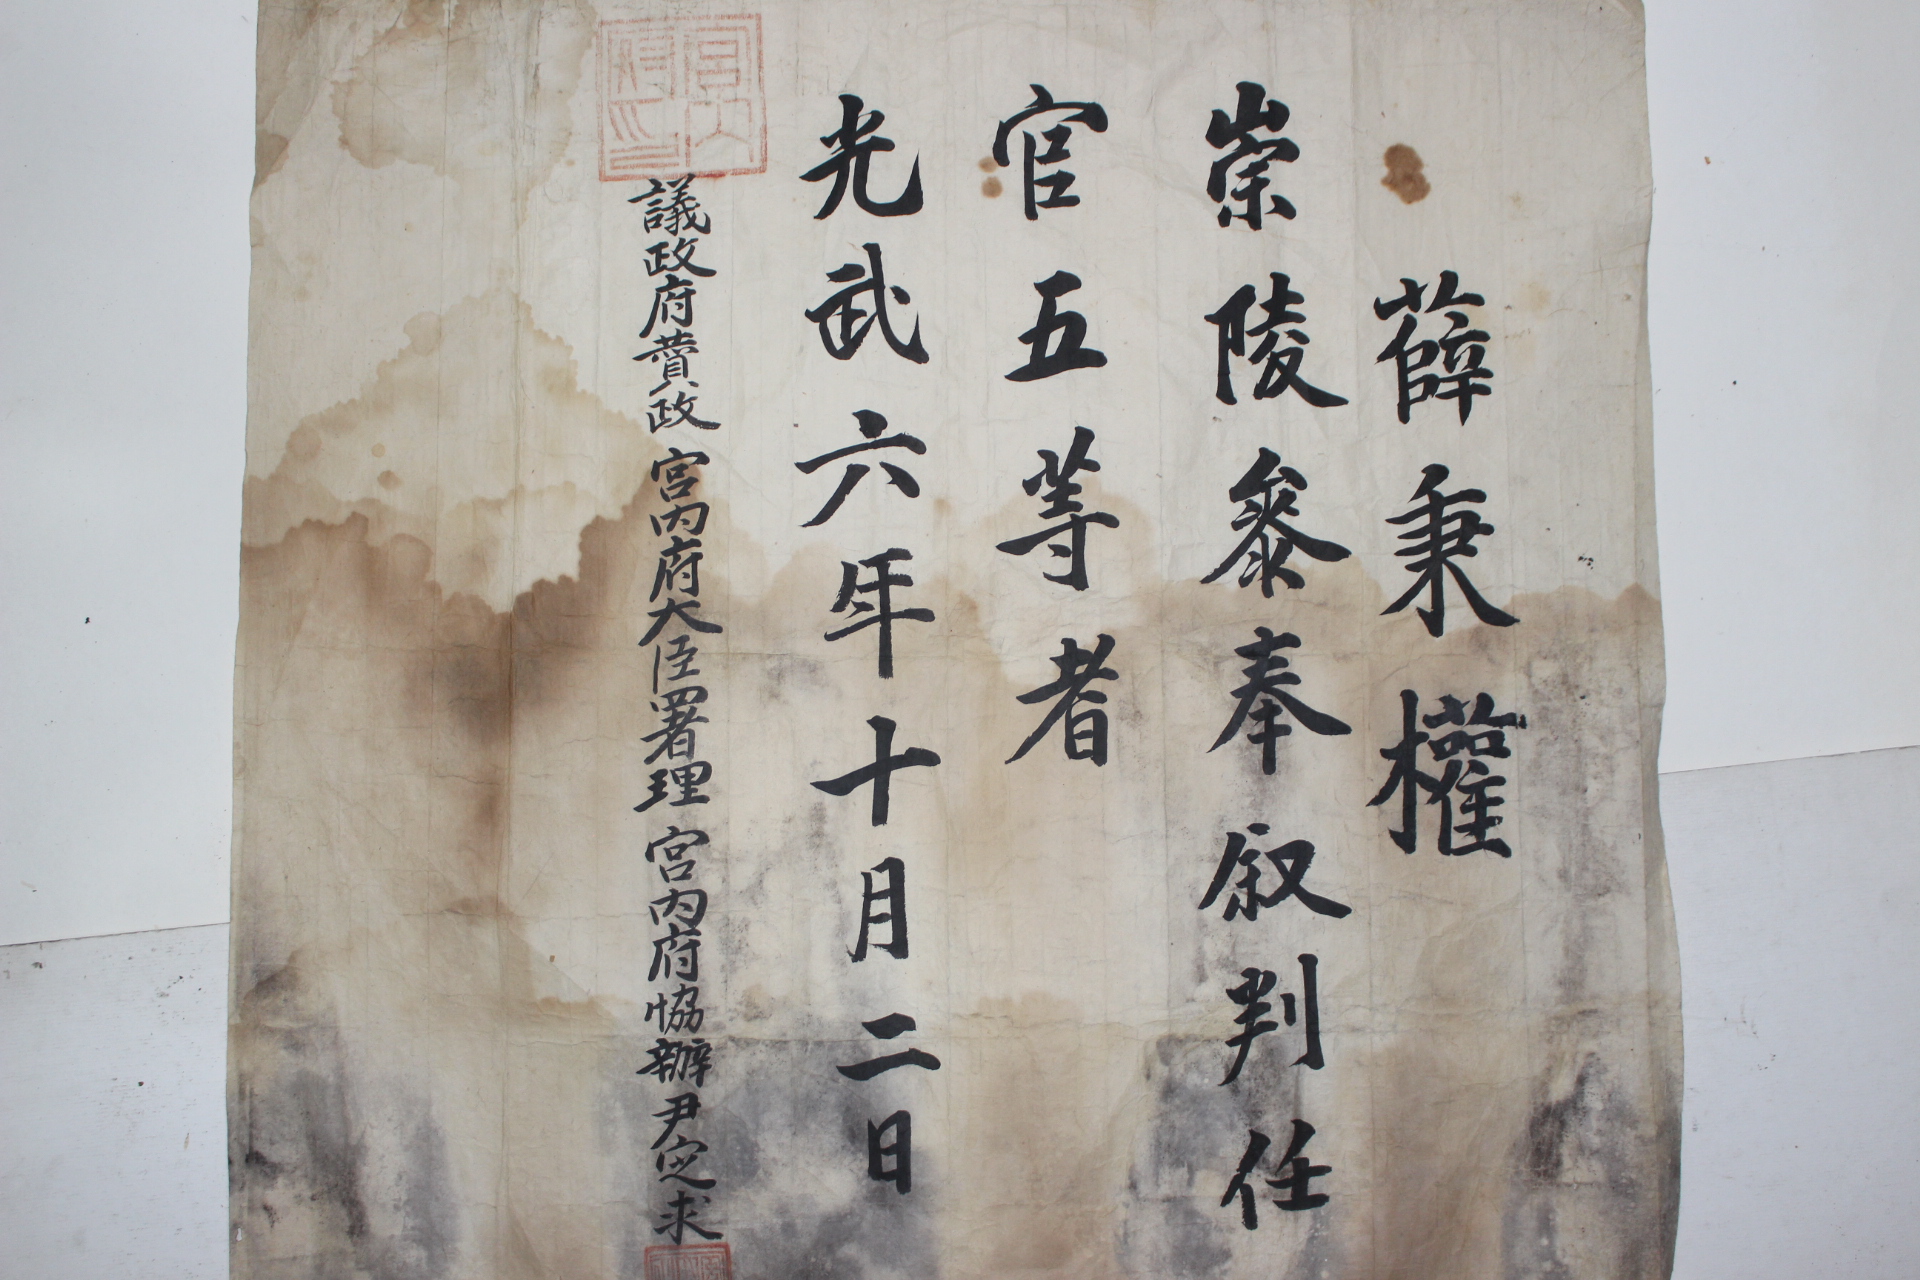 薛秉權
崇陵參奉叙判任
官五等者
光武六年十月二日
議政府贊政 宮內府大臣署理 宮內府協辦尹定求